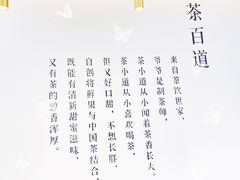 茶百道
来自茶饮世家，
爷爷是制茶师，
茶小道从小闻着茶香长大。
茶小道从小喜欢喝茶，
但又好口甜，不想长胖，
自创将鲜果与中国茶结合，
既能有清新甜蜜滋味，
又有茶的醇香浑厚。